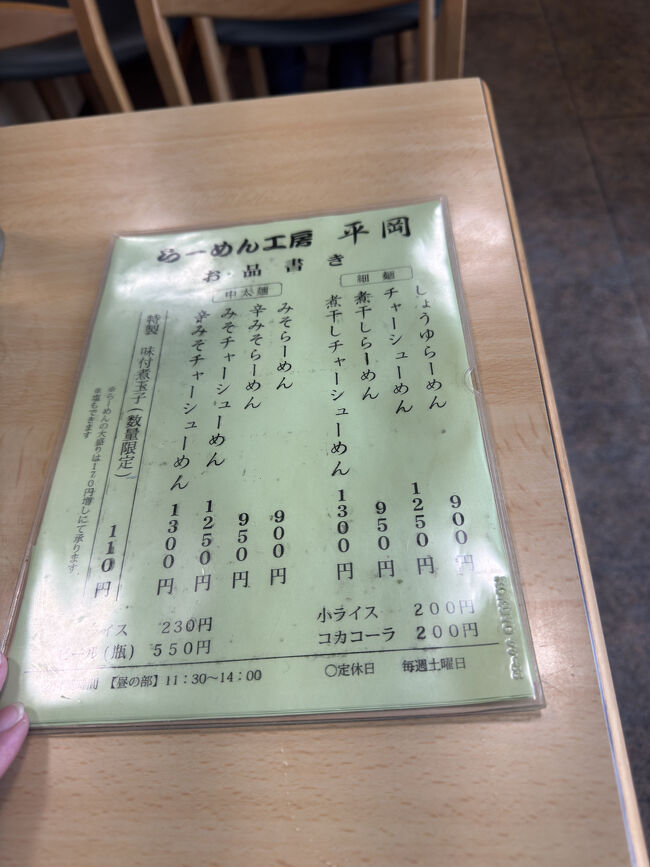 らーめん工房 平岡
お品書き
細麺
しょうゆらーめん 900円
チャーシューめん 1250円
煮干しらーめん 950円
煮干しチャーシューめん 1300円
中太麺
みそらーめん 900円
辛みそらーめん 950円
みそチャーシューめん 1250円
辛みそチャーシューめん 1300円
特製 味付煮玉子(数量限定) 110円
※らーめんの大盛りは170円増しにて承ります
※塩もできます
小ライス 200円
コカコーラ 200円
イス 230円
ビール(瓶) 550円
【昼の部】11:30〜14:00
○定休日 毎週土曜日